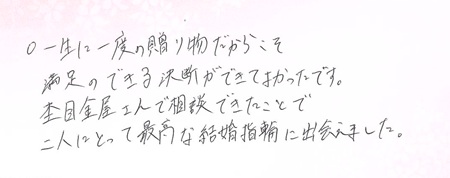 ○一生に一度の贈り物だからこそ
満足のできる決断ができてよかったです。
杢目金屋さんで相談できたことで
二人にとって最高な結婚指輪に出会えました。